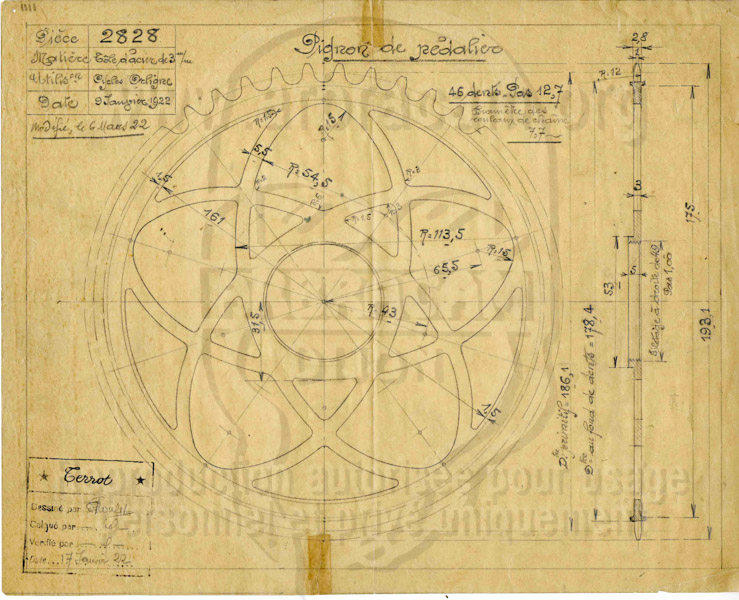 Pièce 2828
Matière Tôle d'acier de 3 m/m
Utilis.on Cycles
Date 9 Janvier 1922
Modifié, le 6 Mars 22
Pignon de pédalier
46 dents Pas 12,7
Diamètre des
rouleaux de chaîne
7,7
R=15,1
5,5
R=54,5
1,5
161
R=113,5
65,5
R=15
R=43
31,5
1,5
2,8
R=12
3
5
53
175
193,1
Filetage à droite de 49
Pas 1,00
D.tre primitif = 186,1
D.tre au fond de dents = 178,4
★ Terrot ★
Dessiné par
Calqué par
Vérifié par
Date 17 Janvier 22
production autorisée pour usage
personnel et privé uniquement